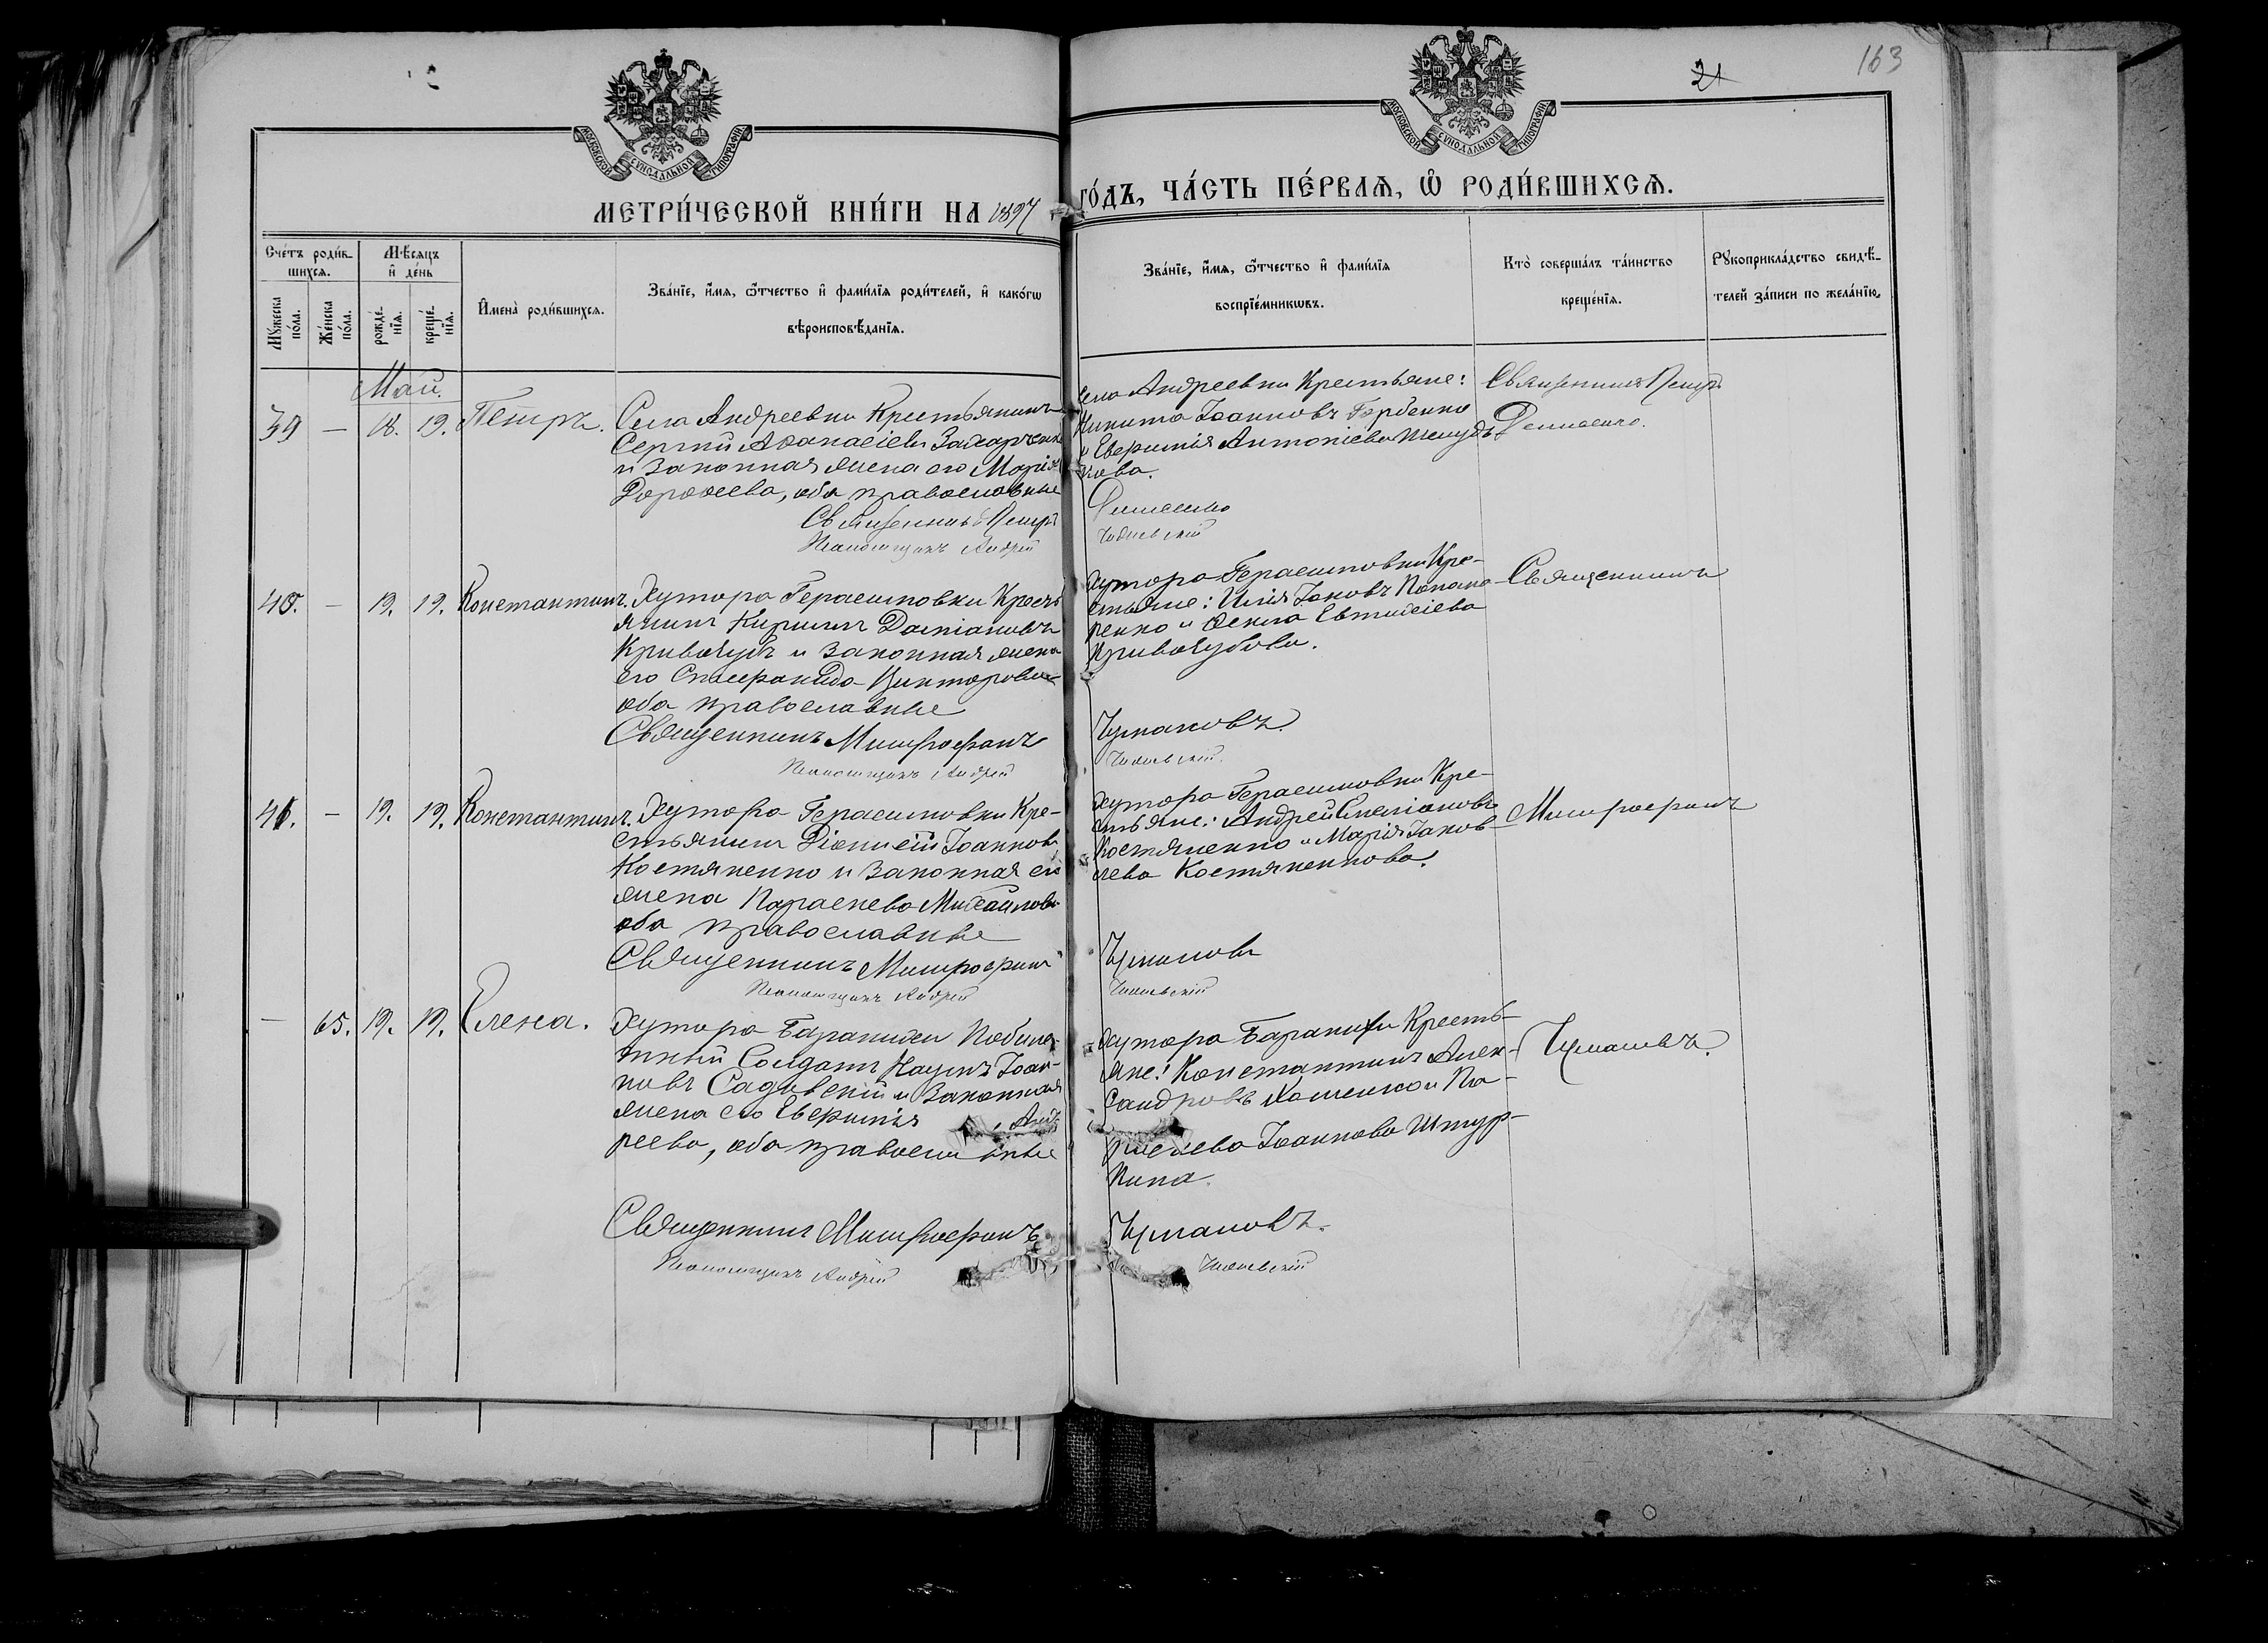 163
21
МОСКОВСКОЙ СѴНОДАЛЬНОЙ ТИПОГРАФІИ
МОСКОВСКОЙ СѴНОДАЛЬНОЙ ТИПОГРАФІИ
МЕТРИ́ЧЕСКОЙ КНИ́ГИ НА 1897
ГО́ДЪ, ЧА́СТЬ ПЕ́РВАѦ, Ѽ РОДИ́ВШИХСѦ.
Сче́тъ роди́в-
шихсѧ.
Мѣ́сѧцъ
и҆ де́нь
Мꙋ́жеска
по́ла.
Же́нска
по́ла.
рожде́-
нїѧ.
креще́-
нїѧ.
И҆мена̀ роди́вшихсѧ.
Зва́нїе, и҆́мѧ, ѻ҆́тчество и҆ фами́лїѧ роди́телей, и҆ како́гѡ
вѣроисповѣ́данїѧ.
Зва́нїе, и҆́мѧ, ѻ҆́тчество и҆ фами́лїѧ
воспрїе́мникѡвъ.
Кто̀ соверша́лъ та́инство
креще́нїѧ.
Рꙋкоприкла́дство свидѣ́-
телей за́писи по жела́нїю.
Май.
39 — 18. 19. Петръ.
Села Андреевки Крестьянинъ
Сергій Аѳанасіевъ Захарченко
и законная жена его Марія
Дороѳеева, оба православные
Священникъ Петръ
Псаломщикъ Андрей
Села Андреевки Крестьяне:
Никита Іоанновъ Горбенко
и Евфимія Антоніева
кова.
Денисенко
Священникъ Петръ
Денисенко.
40. — 19. 19. Константинъ.
Хутора Герасимовки Кресть
янинъ Кириллъ Даміановъ
Кривочубъ и законная жена
его Спиридонида Викторова
оба православные
Священникъ Митрофанъ
Псаломщикъ Андрей
Хутора Герасимовки Кре-
стьяне: Илія Іаковъ Понама-
ренко и Ѳекла Евтихіева
Кривочубова.
Чумаковъ
Священникъ
41. — 19. 19. Константинъ.
Хутора Герасимовки Кре-
стьянинъ Діонисій Іоанновъ
Костяненко и законная его
жена Параскева Михаилова
оба православные
Священникъ Митрофанъ
Псаломщикъ Андрей
Хутора Герасимовки Кре-
стьяне: Андрей Симеоновъ
Костяненко и Марія Іаков-
лева Костяненкова.
Чумаковъ
Митрофанъ
— 65. 19. 19. Елена.
Хутора Баранихи Побилет-
тный Солдатъ Наумъ Іоан-
новъ Садовскій и Законная
жена его Евфимія Анд
реева, оба православные
Священникъ Митрофанъ
Псаломщикъ Андрей
Хутора Баранихи Кресть-
яне: Константинъ Алек-
сандровъ Кошенко и Па-
раскева Іоаннова Штур-
кина.
Чумаковъ.
Чумаковъ.